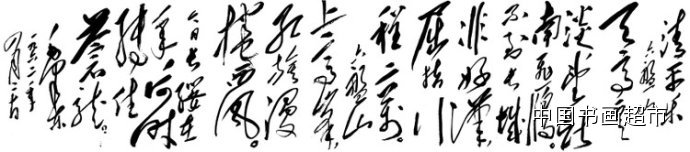 清平乐
六盤山
天高云
淡望断
南飛雁。
不到长城
非好漢
屈指行
程二萬。
六盤山
上高峰
红旗漫
捲西風。
今日长缨在
手，何时
缚住
苍龙。
毛泽东
一九六一年
中国书画超市